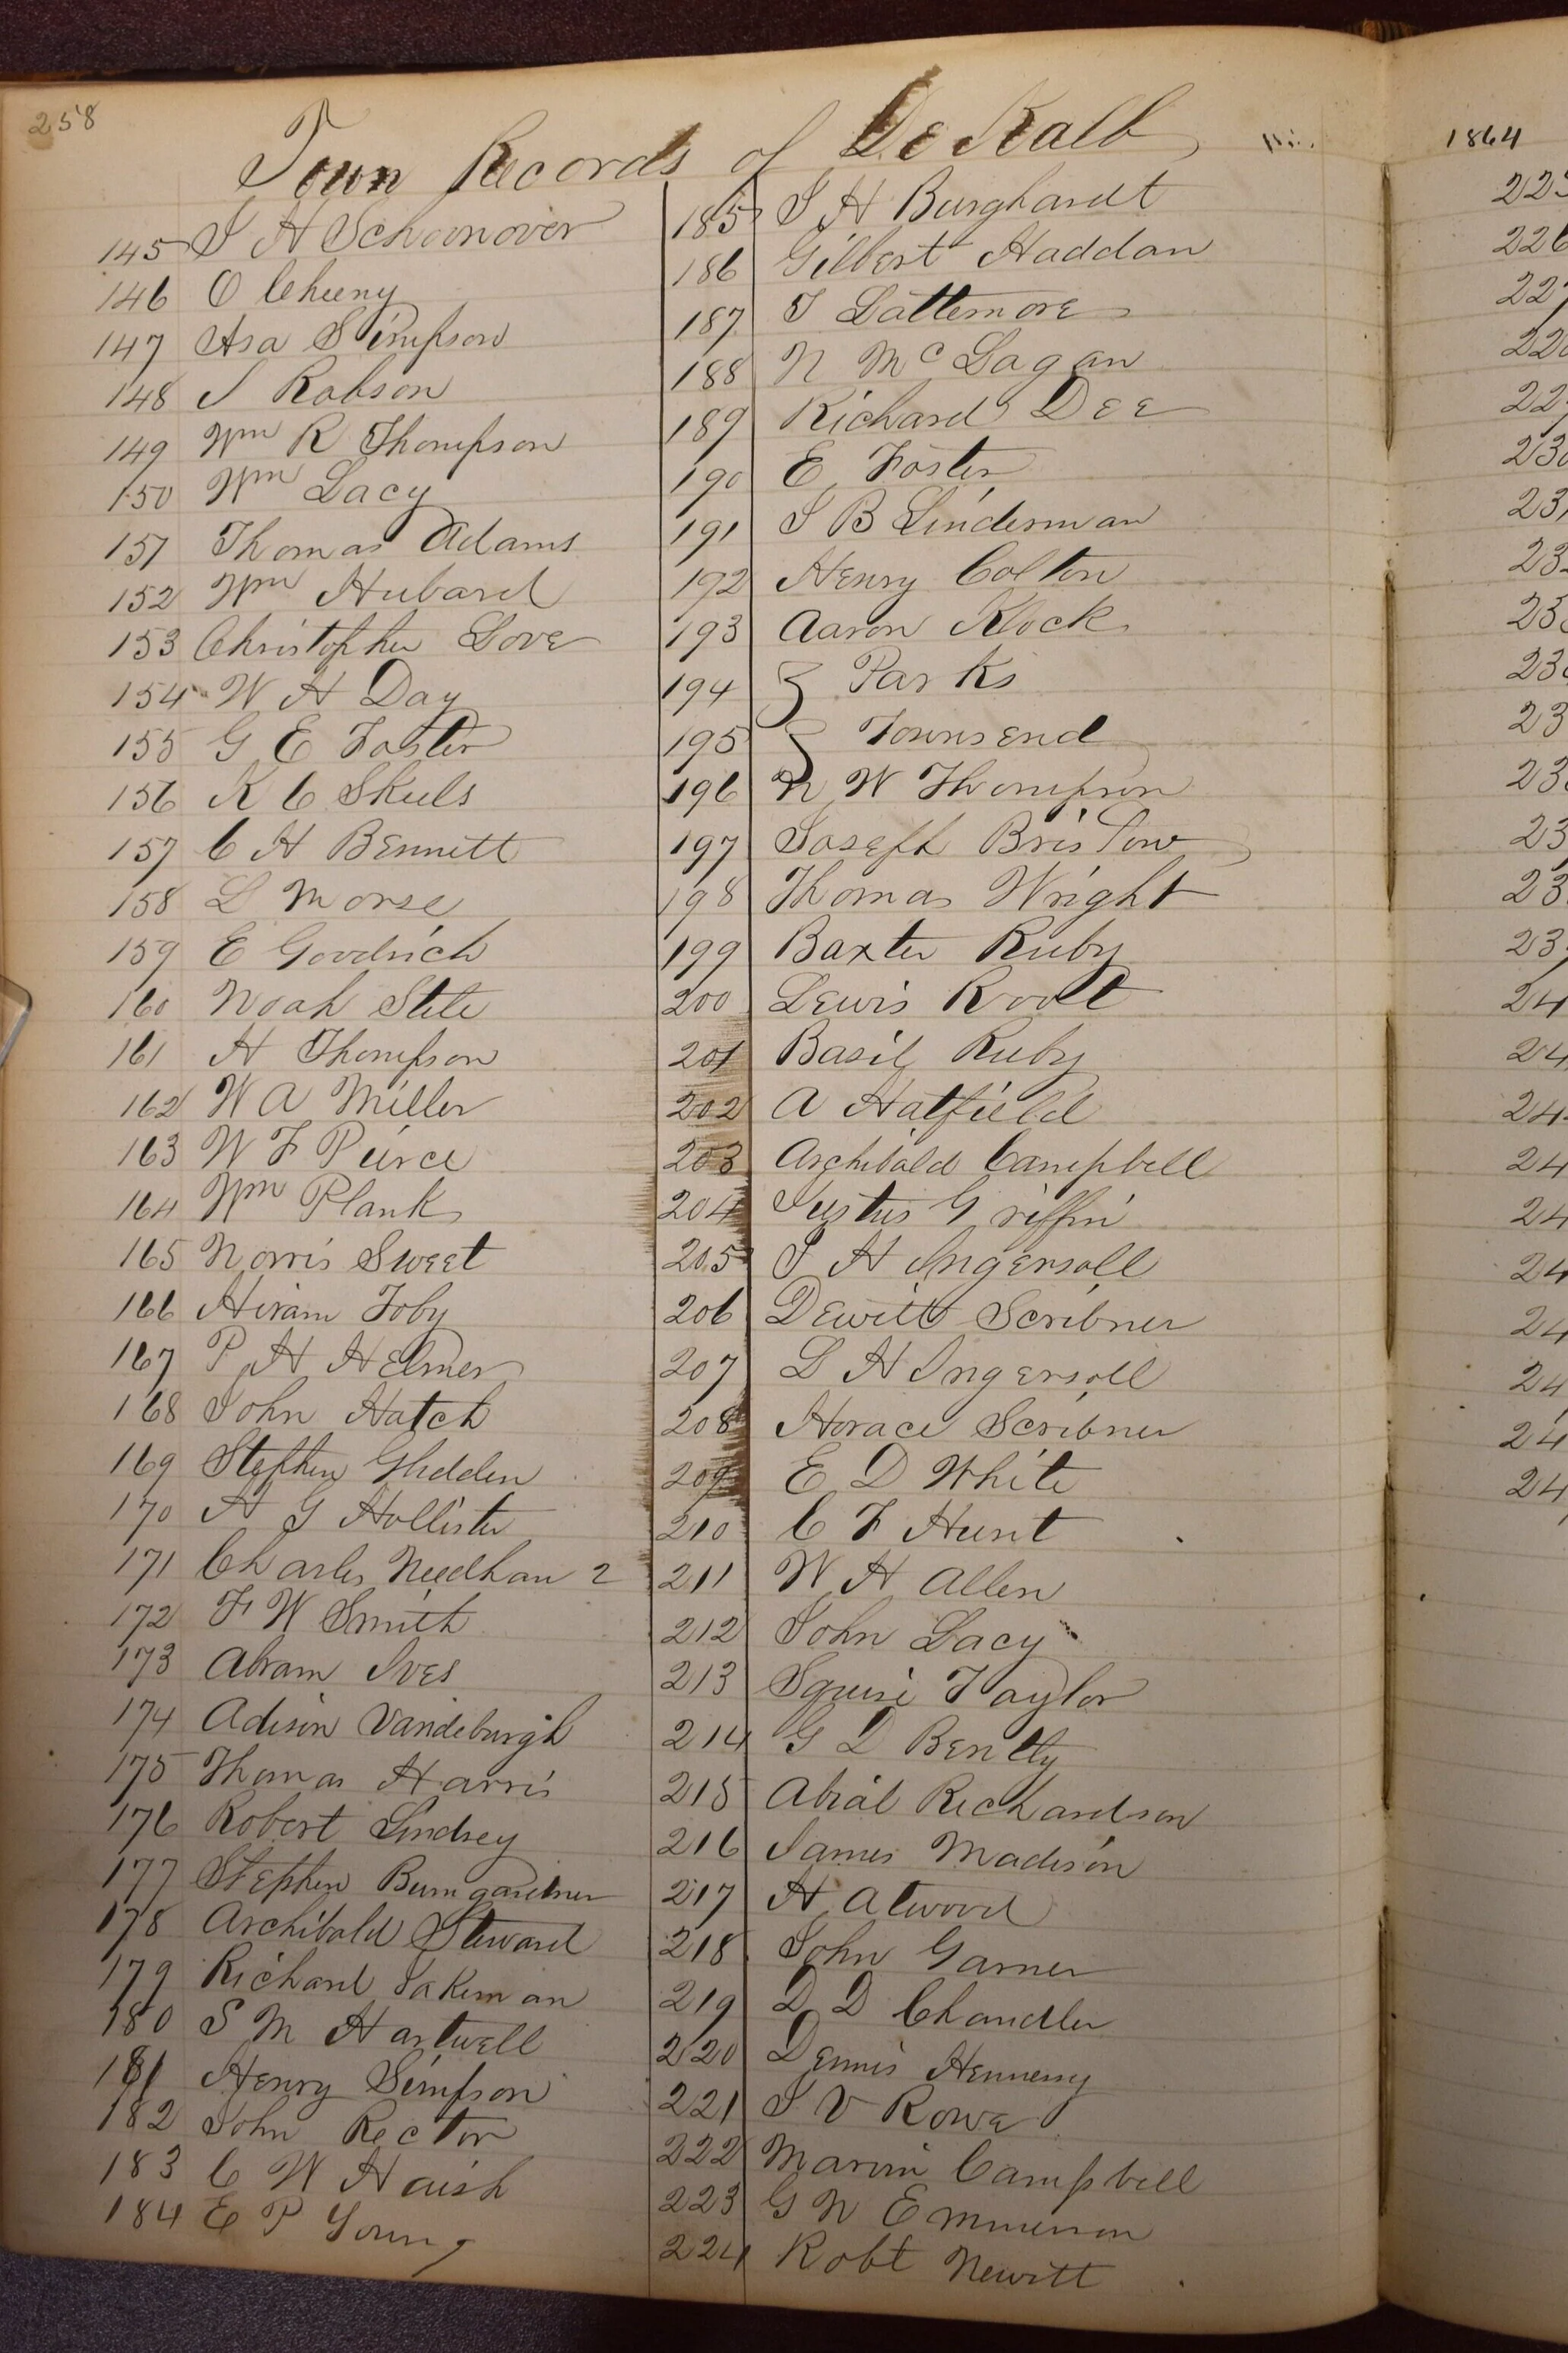 258
Town Records of De Kalb
145 I H Schoonover
146 O Cheeny
147 Asa Simpson
148 J Robson
149 Wm R Thompson
150 Wm Lacy
151 Thomas Adams
152 Wm Hubard
153 Christopher Love
154 W H Day
155 G E Foster
156 K C Skeels
157 C H Bennett
158 L Morse
159 E Goodrich
160 Noah Stile
161 H Thompson
162 W A Miller
163 W F Peirce
164 Wm Plank
165 Norris Sweet
166 Hiram Toby
167 P H Helmer
168 John Hatch
169 Stephen Glidden
170 H G Hollister
171 Charles Needham 2
172 F W Smith
173 Abram Ives
174 Adison Vandeburgh
175 Thomas Harris
176 Robert Lindsey
177 Stephen Bumgardner
178 Archibald Steward
179 Richard Jakeman
180 S M Hartwell
181 Henry Simpson
182 John Rector
183 C W Haish
184 E P Young
185 I H Burghardt
186 Gilbert Haddan
187 T Lattemore
188 N Mc Lagan
189 Richard Dee
190 E Foster
191 I B Linderman
192 Henry Colton
193 Aaron Klock
194 Parks
195 Townsend
196 N W Thompson
197 Joseph Bristow
198 Thomas Wright
199 Baxter Ruby
200 Lewis Root
201 Basil Ruby
202 A Hatfield
203 Archibald Campbell
204 Justus Griffin
205 I H Ingersoll
206 Dewitt Scribner
207 L H Ingersoll
208 Horace Scribner
209 E D White
210 C F Hunt
211 W H Allen
212 John Lacy
213 Squire Taylor
214 G D Bently
215 Abial Richardson
216 James Madison
217 H Atwood
218 John Garner
219 D D Chandler
220 Dennis Hennessy
221 I V Rowe
222 Marvin Campbell
223 G N Emmerson
224 Robt Newitt
1864